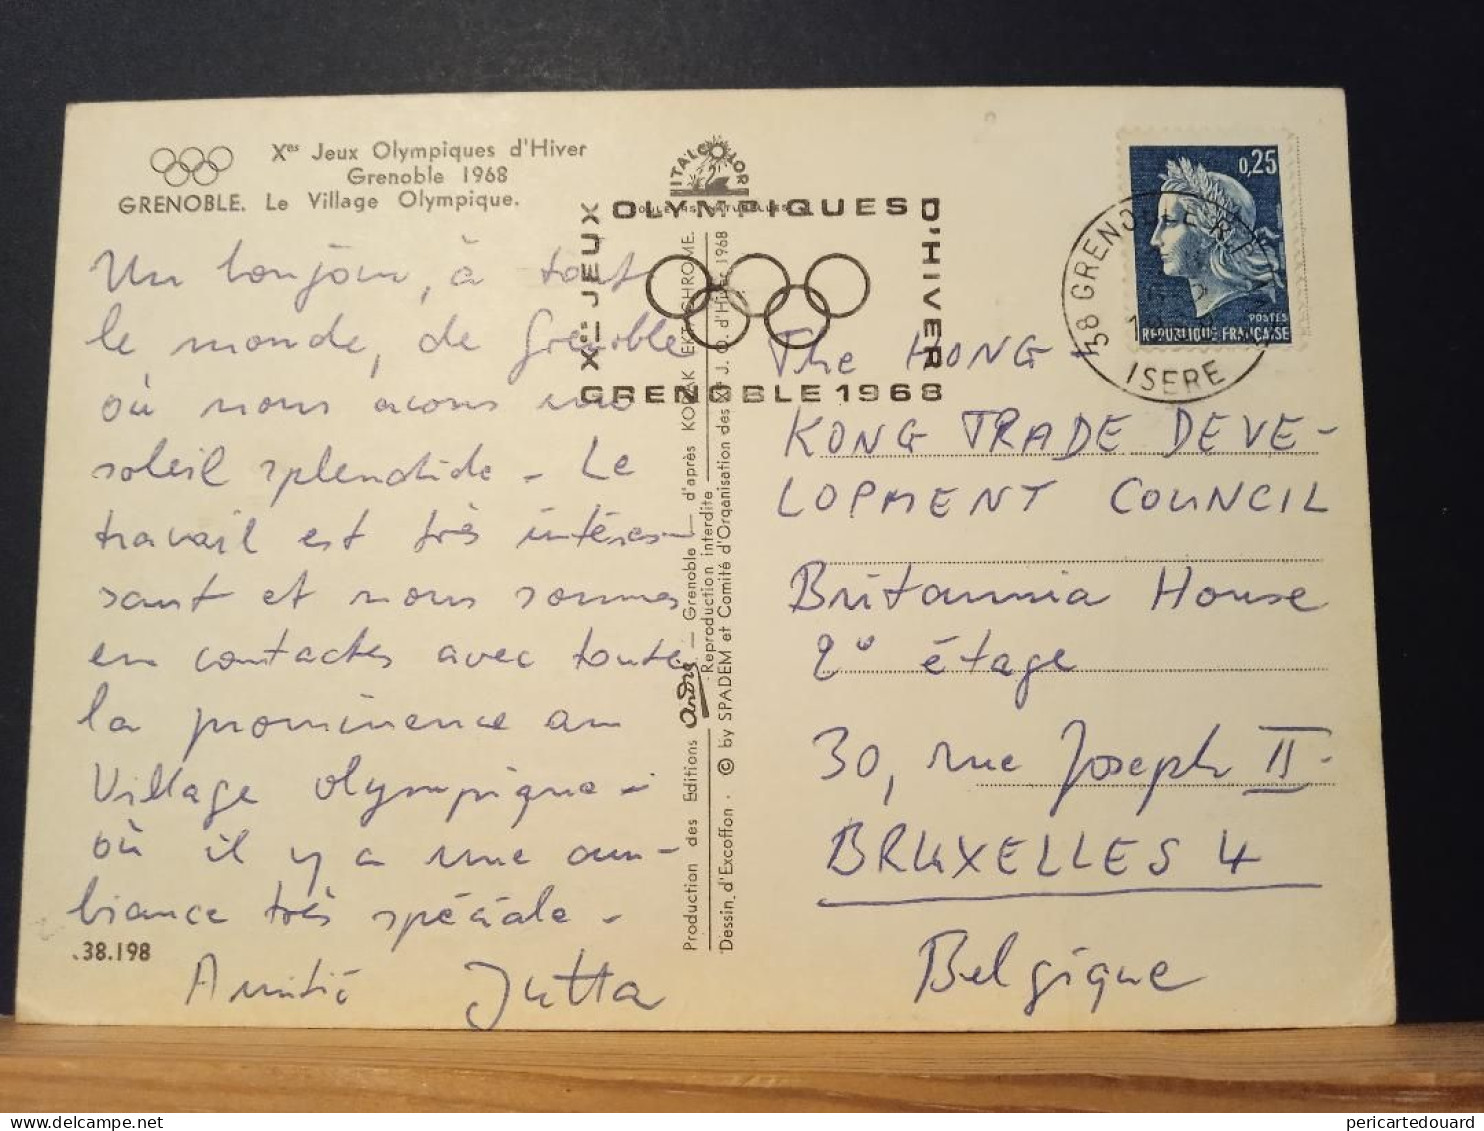 Xes Jeux Olympiques d'Hiver
Grenoble 1968
GRENOBLE. Le Village Olympique.
Un bonjour, à tout
le monde, de Grenoble
où nous avons un
soleil splendide - Le
travail est très intéres-
sant et nous sommes
en contactes avec toute
la prominence au
Village Olympique -
où il y a une am-
biance très spéciale -
Amitié Jutta
.38.198
ITALCOLOR
Xes JEUX
OLYMPIQUES
D'HIVER
GRENOBLE 1968
Production des Editions André — Grenoble — d'après KODAK EKTACHROME.
Reproduction interdite
Dessin d'Excoffon - © by SPADEM et Comité d'Organisation des Xes J. O. d'Hiver 1968
0,25
POSTES
REPUBLIQUE FRANÇAISE
38 GRENOBLE R.P.
ISERE
The HONG -
KONG TRADE DEVE-
LOPMENT COUNCIL
Britannia House
2e étage
30, rue Joseph II -
BRUXELLES 4
Belgique
pericartedouard